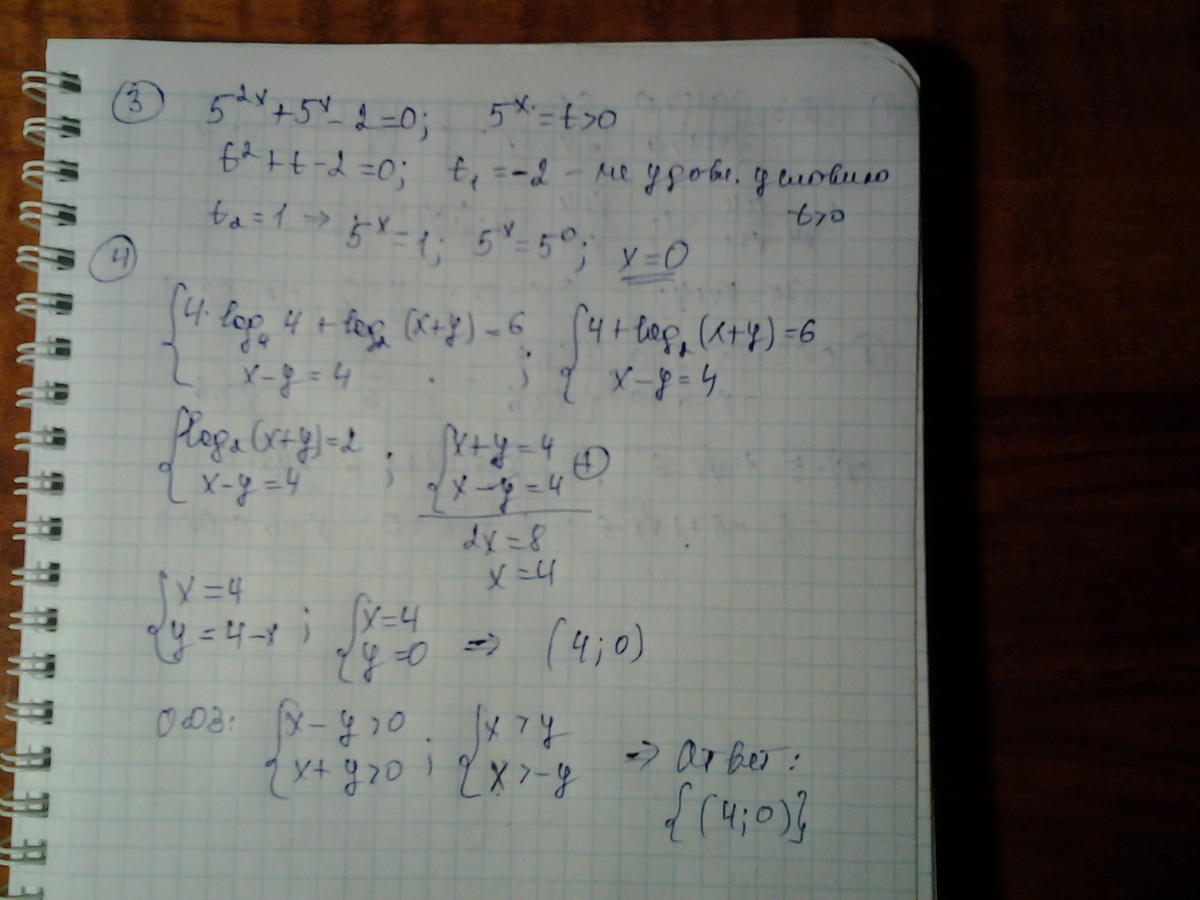 ③ 5^{2x}+5^x-2=0; 5^x=t>0
t²+t-2=0; t₁=-2 - не удовл. условию
t₂=1 ⇒ 5^x=1; 5^x=5^0; x=0 t>0
④
{4·log₄4+log₂(x+y)=6 ; {4+log₂(x+y)=6
x-y=4 x-y=4
{log₂(x+y)=2 ; {x+y=4 ⊕
x-y=4 x-y=4
2x=8
x=4
{x=4 ; {x=4
y=4-x y=0 ⇒ (4;0)
ОДЗ: {x-y>0 ; {x>y ⇒ Ответ:
x+y>0 x>-y
{(4;0)}